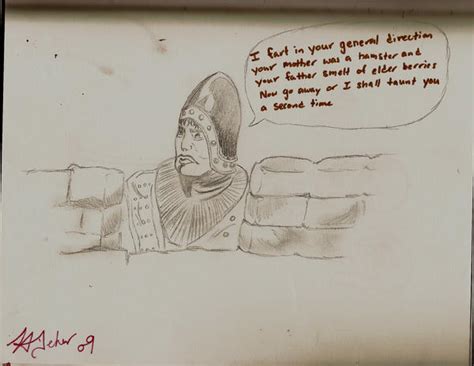 I fart in your general direction
your mother was a hamster and
your father smelt of elder berries
Now go away or I shall taunt you
a second time
09